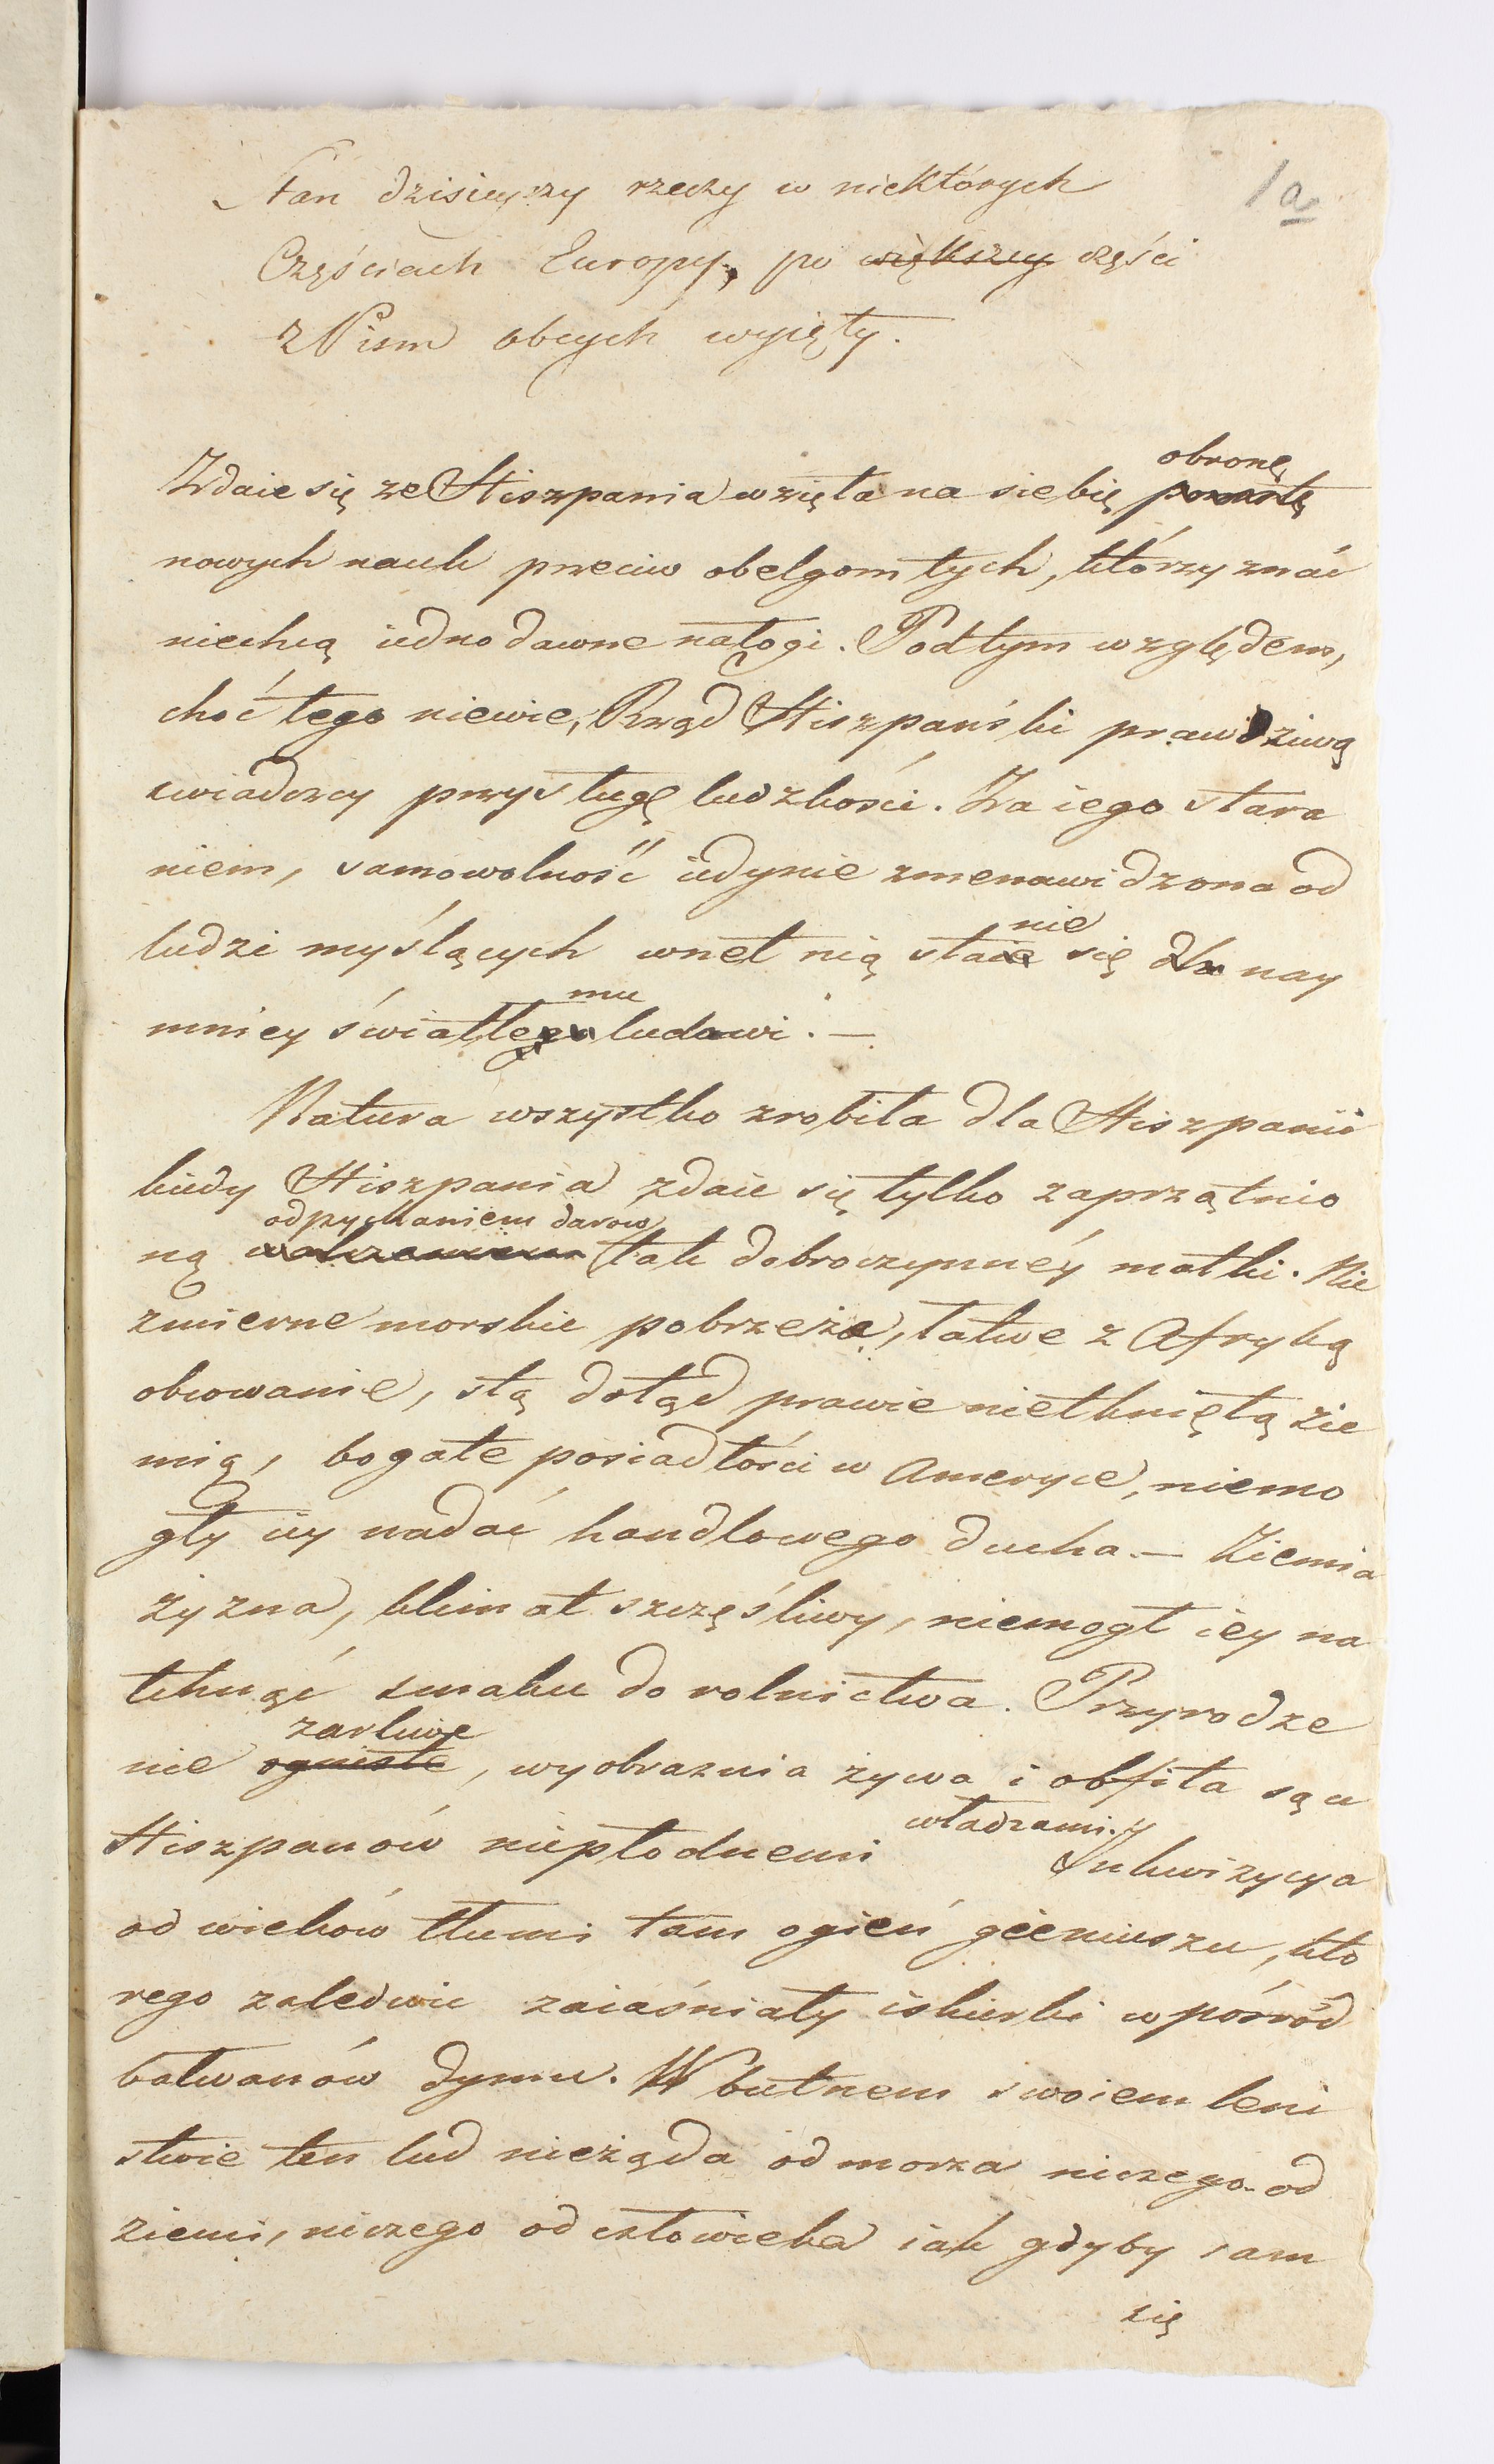 1a
Stan dzisieyszy rzeczy w niektórych
Częściach Europy, po większey części
z Pism obcych wyięty.
obronę
Zdaie się ze Hiszpania wzięła na siebię pomstę
nowych nauk przeciw obelgom tych, którzy znać
niechcą iedno dawne nałogi. Pod tym względem,
choć tego niewie, Rząd Hiszpański prawdziwą
swiadczy przysługę ludzkości. Za iego stara
niem, samowolność iedynie znienawidzona od
nie
ludzi myślących wnet nią staie się dla nay
mu
mniey światłego ludowi. —
Natura wszystko zrobiła dla Hiszpanii
kiedy Hiszpania zdaie się tylko zaprzątnio
odpychaniem darów
ną tak dobroczynnéy matki. Nie
zmierne morskie pobrzeża, łatwe z Afryką
obcowanie, stą dotąd prawie nietkniętą zie
mią, bogate posiadłości w Ameryce, niemo
gły iey nadać handlowego ducha. — Ziemia
żyzna, klimat szczęśliwy, niemogł iey na
tchnąć smaku do rolnictwa. Przyrodze
żarliwe
nie ogniste, wyobraznia żywa i obfita są u
władzami. y
Hiszpanów niepłodnemi Inkwizycya
od wieków tłumi tam ogień gieniuszu, któ
rego zaledwie zaiaśniały iskierki wpośród
bałwanów dymu. W butnem swoiem leni
stwie ten lud nieżąda od morza niczego od
ziemi, niczego od człowieka iak gdyby sam
się